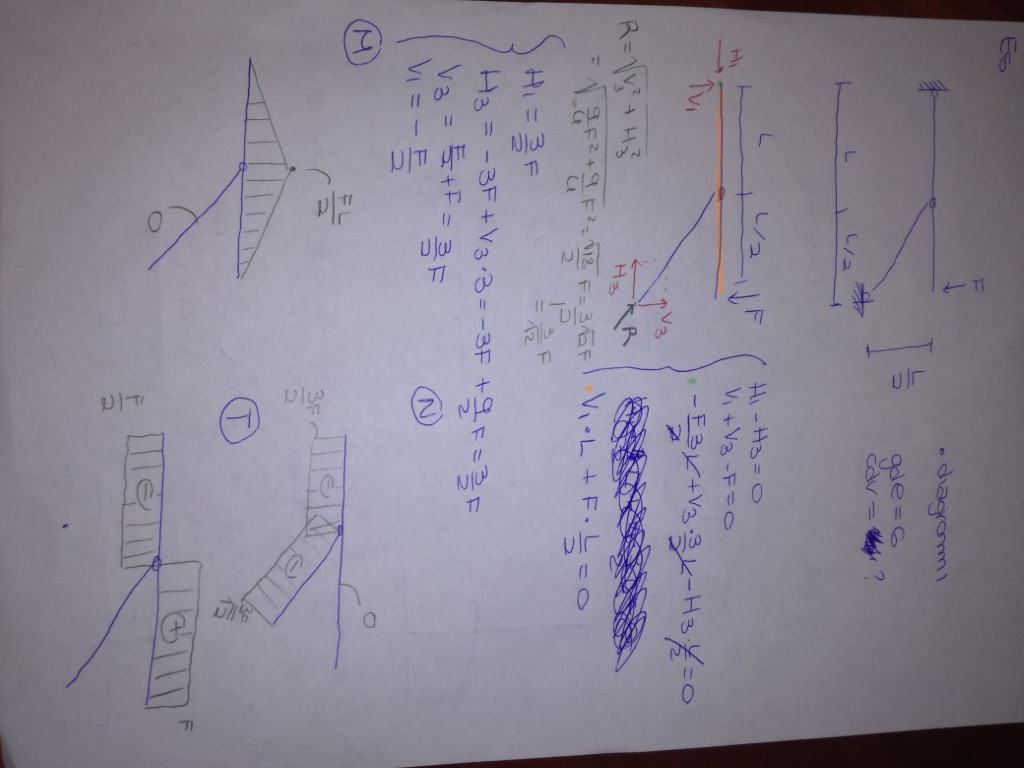 Es
F
L L/2
L/2
• diagrammi
gde = 6
cav = ?
L L/2
F
H1
V1
H3
V3
R
H1 - H3 = 0
V1 + V3 - F = 0
- F 3/2 L + V3 · 3/2 L - H3 L/2 = 0
V1 · L + F · L/2 = 0
R = √V3² + H3²
= √9/4 F² + 9/4 F² = √18/2 F = 3√2/2 F
= 3/√2 F
H1 = 3/2 F
H3 = -3F + V3 · 3 = -3F + 9/2 F = 3/2 F
V3 = F/2 + F = 3/2 F
V1 = - F/2
M
FL/2
0
N
3F/2
0
3F/√2
T
F/2
F